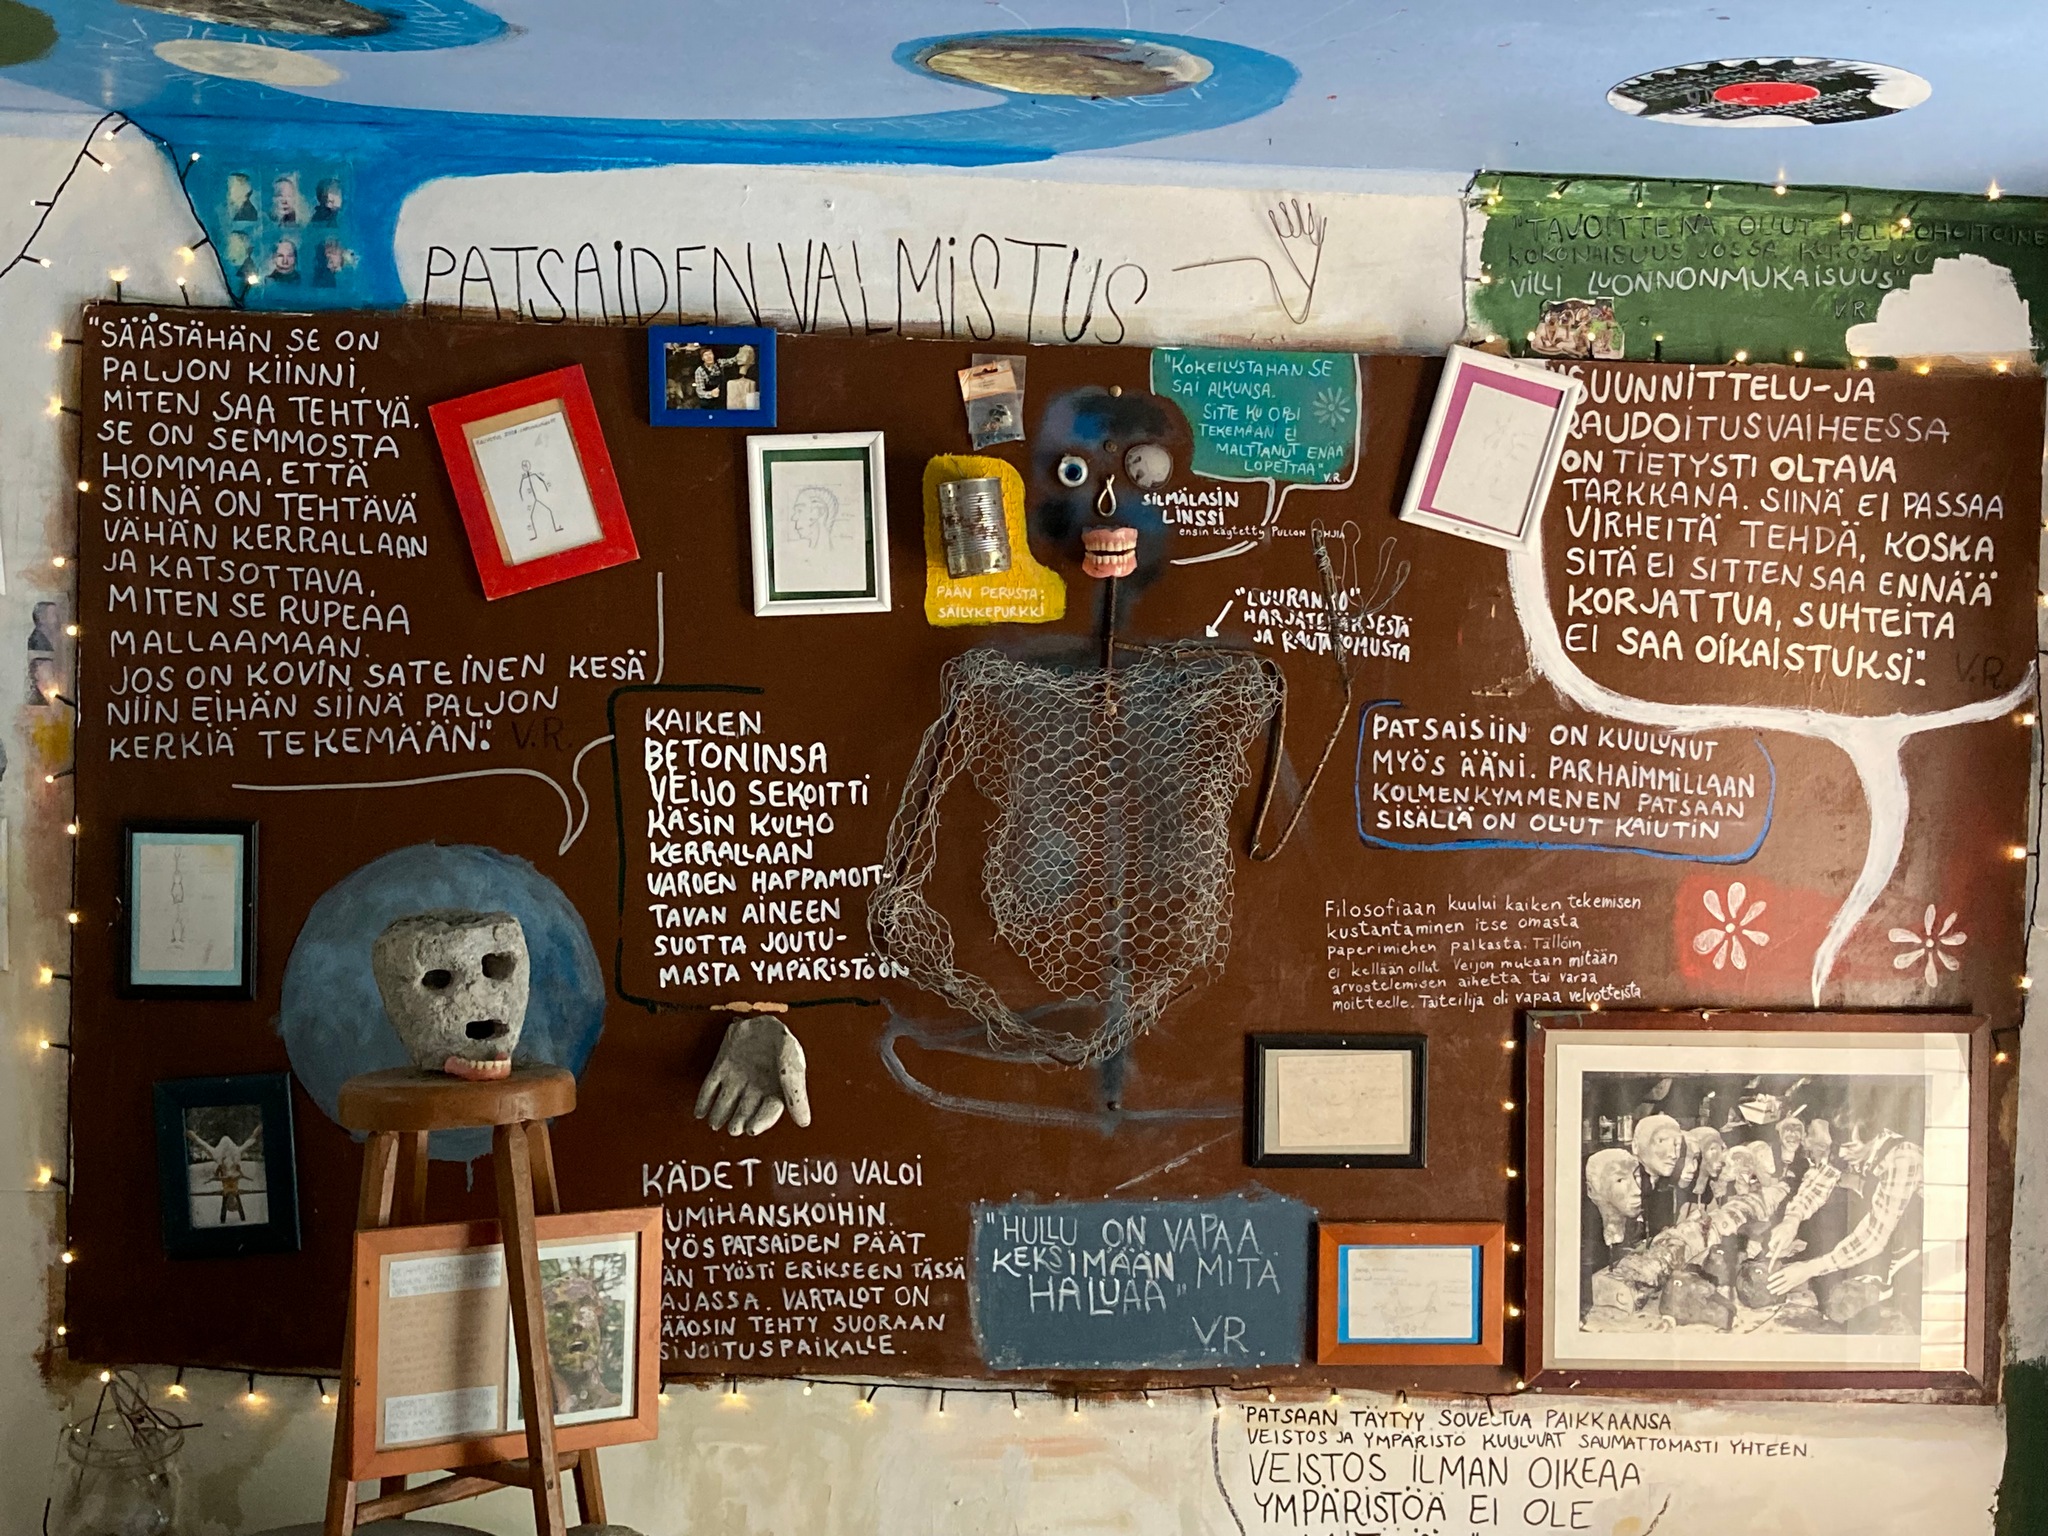 PATSAIDEN VALMISTUS
"TAVOITTEENA OLLUT HELPPOHOITOINEN
KOKONAISUUS JOSSA KOROSTUU
VILLI LUONNONMUKAISUUS"
V.R.
"SÄÄSTÄHÄN SE ON
PALJON KIINNI,
MITEN SAA TEHTYÄ.
SE ON SEMMOSTA
HOMMAA, ETTÄ
SIINÄ ON TEHTÄVÄ
VÄHÄN KERRALLAAN
JA KATSOTTAVA,
MITEN SE RUPEAA
MALLAAMAAN.
JOS ON KOVIN SATEINEN KESÄ
NIIN EIHÄN SIINÄ PALJON
KERKIÄ TEKEMÄÄN". V.R.
"KOKEILUSTAHAN SE
SAI ALKUNSA.
SITTE KU OPPI
TEKEMÄÄN EI
MALTTANUT ENÄÄ
LOPETTAA"
V.R.
SILMÄLASIN
LINSSI
ensin käytetty PULLON POHJIA
PÄÄN PERUSTA:
SÄILYKEPURKKI
"LUURANKO"
HARJATERÄKSESTÄ
JA RAUTAROMUSTA
"SUUNNITTELU- JA
RAUDOITUSVAIHEESSA
ON TIETYSTI OLTAVA
TARKKANA. SIINÄ EI PASSAA
VIRHEITÄ TEHDÄ, KOSKA
SITÄ EI SITTEN SAA ENNÄÄ
KORJATTUA, SUHTEITA
EI SAA OIKAISTUKSI".
V.R.
KAIKEN
BETONINSA
VEIJO SEKOITTI
KÄSIN KULHO
KERRALLAAN
VAROEN HAPPAMOIT-
TAVAN AINEEN
SUOTTA JOUTU-
MASTA YMPÄRISTÖÖN
PATSAISIIN ON KUULUNUT
MYÖS ÄÄNI. PARHAIMMILLAAN
KOLMENKYMMENEN PATSAAN
SISÄLLÄ ON OLLUT KAIUTIN
Filosofiaan kuului kaiken tekemisen
kustantaminen itse omasta
paperimiehen palkasta. Tällöin
ei kellään ollut Veijon mukaan mitään
arvostelemisen aihetta tai varaa
moitteelle. Taiteilija oli vapaa velvotteista.
KÄDET VEIJO VALOI
UMIHANSKOIHIN.
YÖS PATSAIDEN PÄÄT
ÄN TYÖSTI ERIKSEEN TÄSSÄ
AJASSA. VARTALOT ON
ÄÄOSIN TEHTY SUORAAN
SIJOITUSPAIKALLE.
"HULLU ON VAPAA
KEKSIMÄÄN MITÄ
HALUAA"
V.R.
"PATSAAN TÄYTYY SOVELTUA PAIKKAANSA
VEISTOS JA YMPÄRISTÖ KUULUVAT SAUMATTOMASTI YHTEEN.
VEISTOS ILMAN OIKEAA
YMPÄRISTÖÄ EI OLE